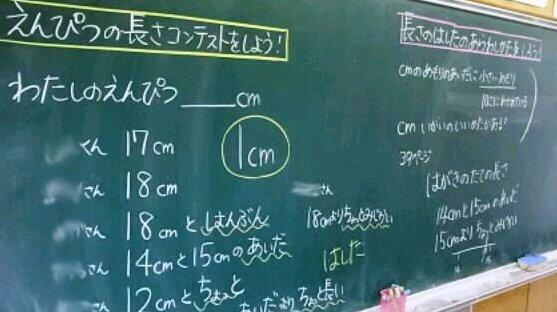 えんぴつの長さコンテストをしよう!
わたしのえんぴつ ＿＿cm
くん 17cm
1cm
さん 18cm
さん 18cmとはんぶん
さん 14cmと15cmのあいだ
さん 12cmとちょっと
さん
18cmよりちょっとみじかい
はした
あいだよりちょっと長い
長さのはしたのあらわしかたをしろう!
cmのめもりのあいだに小さいめもり
10こにわかれている
cmいがいのいいかたがある?
37ページ
はがきのたての長さ
14cmと15cmのあいだ
15cmよりちょっとみじかい